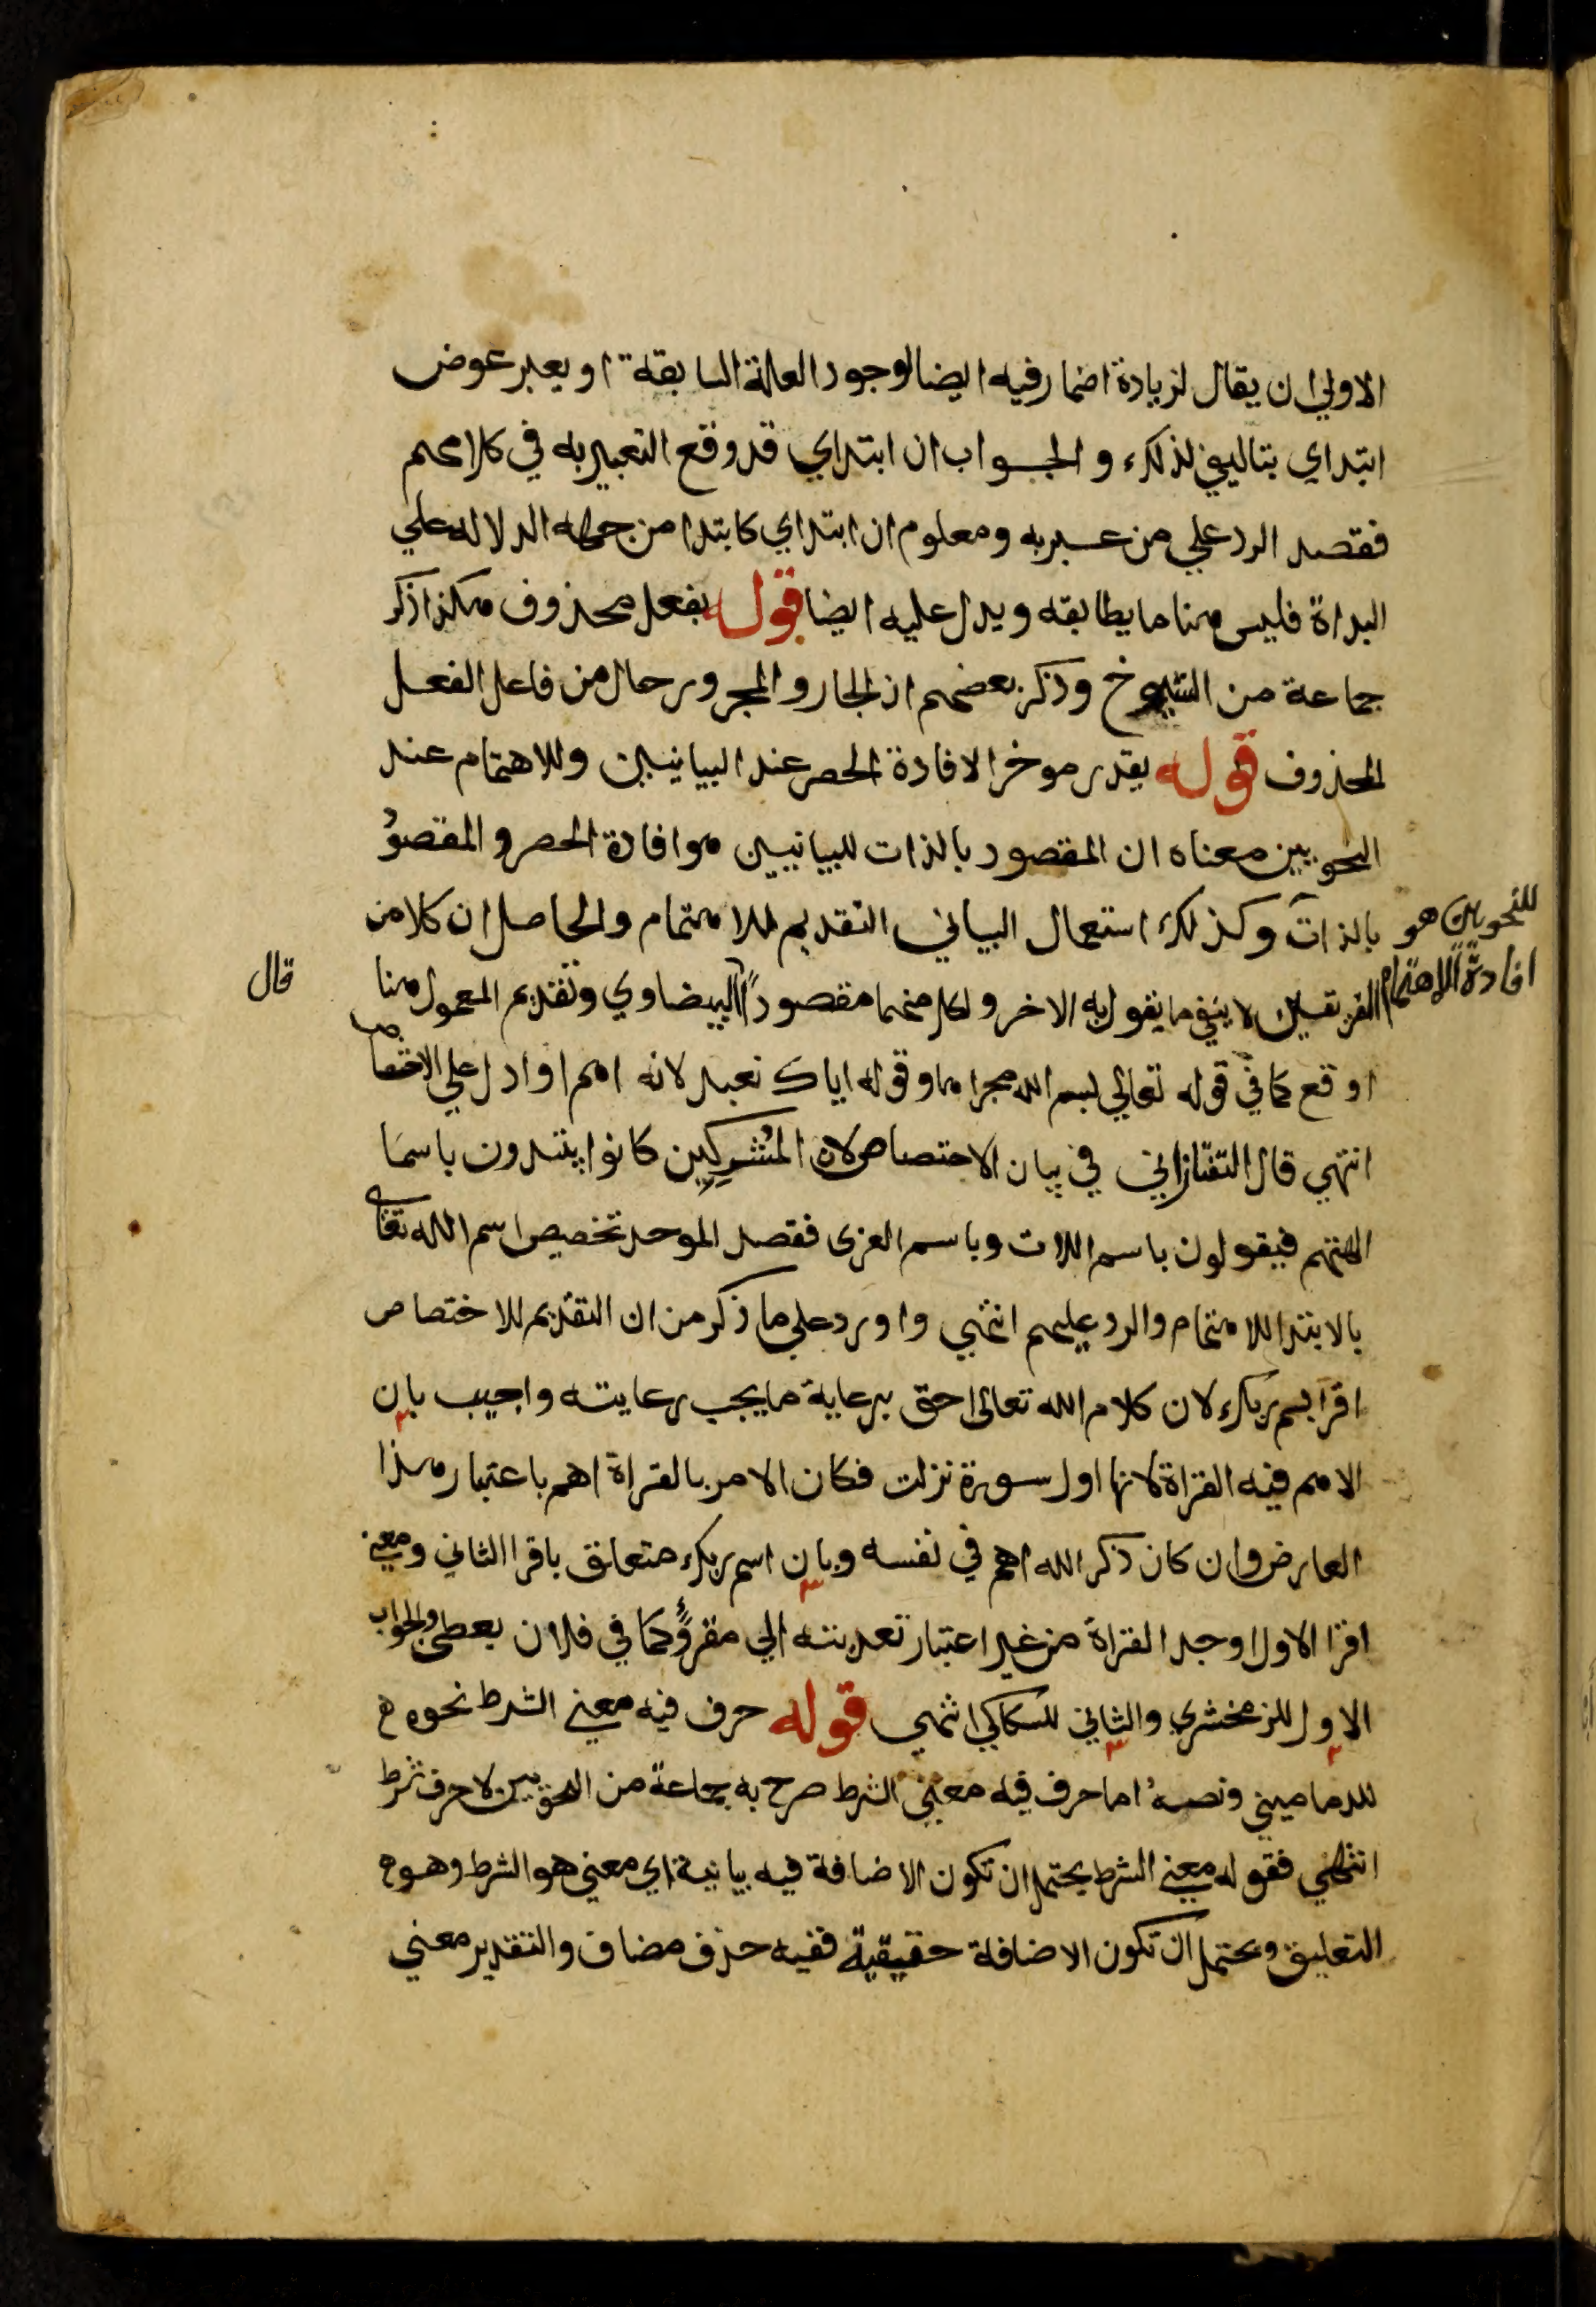 الاولي ان يقال لزيادة اضمار فيه ايضا لوجود العلة السابقة او يعبر عوض
ابتداي بتاليفي لذلك والجواب ان ابتداي قد وقع التعبير به في كلامهم
فقصد الرد علي من عبر به ومعلوم ان ابتداي كابتدا من جهة الدلالة علي
البداة فليس هنا ما يطابقه ويدل عليه ايضا قوله بفعل محذوف هكذا ذكر
جماعة من الشيوخ وذكر بعضهم ان الجار والمجرور حال من فاعل الفعل
المحذوف قوله يقدر موخرا لافادة الحصر عند البيانيين وللاهتمام عند
النحويين معناه ان المقصود بالذات للبيانيين هو افادة الحصر والمقصود
للنحويين هو بالذات وكذلك استعمال البياني التقديم للاهتمام والحاصل ان كلا من
افادة الاهتمام
الفريقين لا ينفي ما يقول به الاخر ولكل منهما مقصود البيضاوي وتقديم المعمول هنا
قال
اوقع كما في قوله تعالي بسم الله مجراها وقوله اياك نعبد لانه اهم وادل علي الاختصاص
انتهي قال التفتازاني في بيان الاختصاص لان المُشركين كانوا يبتدون باسما
الهتهم فيقولون باسم اللات وباسم العزى فقصد الموحد تخصيص اسم الله تعالى
بالابتدا للاهتمام والرد عليهم انتهي واورد علي ما ذكر من ان التقديم للاختصاص
اقرا بسم ربك لان كلام الله تعالى احق برعاية ما يجب رعايته واجيب بان
الاهم فيه القراة لانها اول سورة نزلت فكان الامر بالقراة اهم باعتبار هذا
العارض وان كان ذكر الله اهم في نفسه وبان اسم ربك متعلق باقرا الثاني ومعنى
اقرا الاول اوجد القراة من غير اعتبار تعديته الي مقروٍّ كما في فلان يعطي والجواب
الاول للزمخشري والثاني للسكاكي انتهي قوله حرف فيه معني الشرط نحوه
للدماميني ونصه اما حرف فيه معني الشرط صرح به جماعة من النحويين لا حرف شرط
انتهي فقوله معني الشرط يحتمل ان تكون الاضافة فيه بيانية اي معني هو الشرط وهو
التعليق ويحتمل ان تكون الاضافة حقيقية ففيه حذف مضاف والتقدير معني